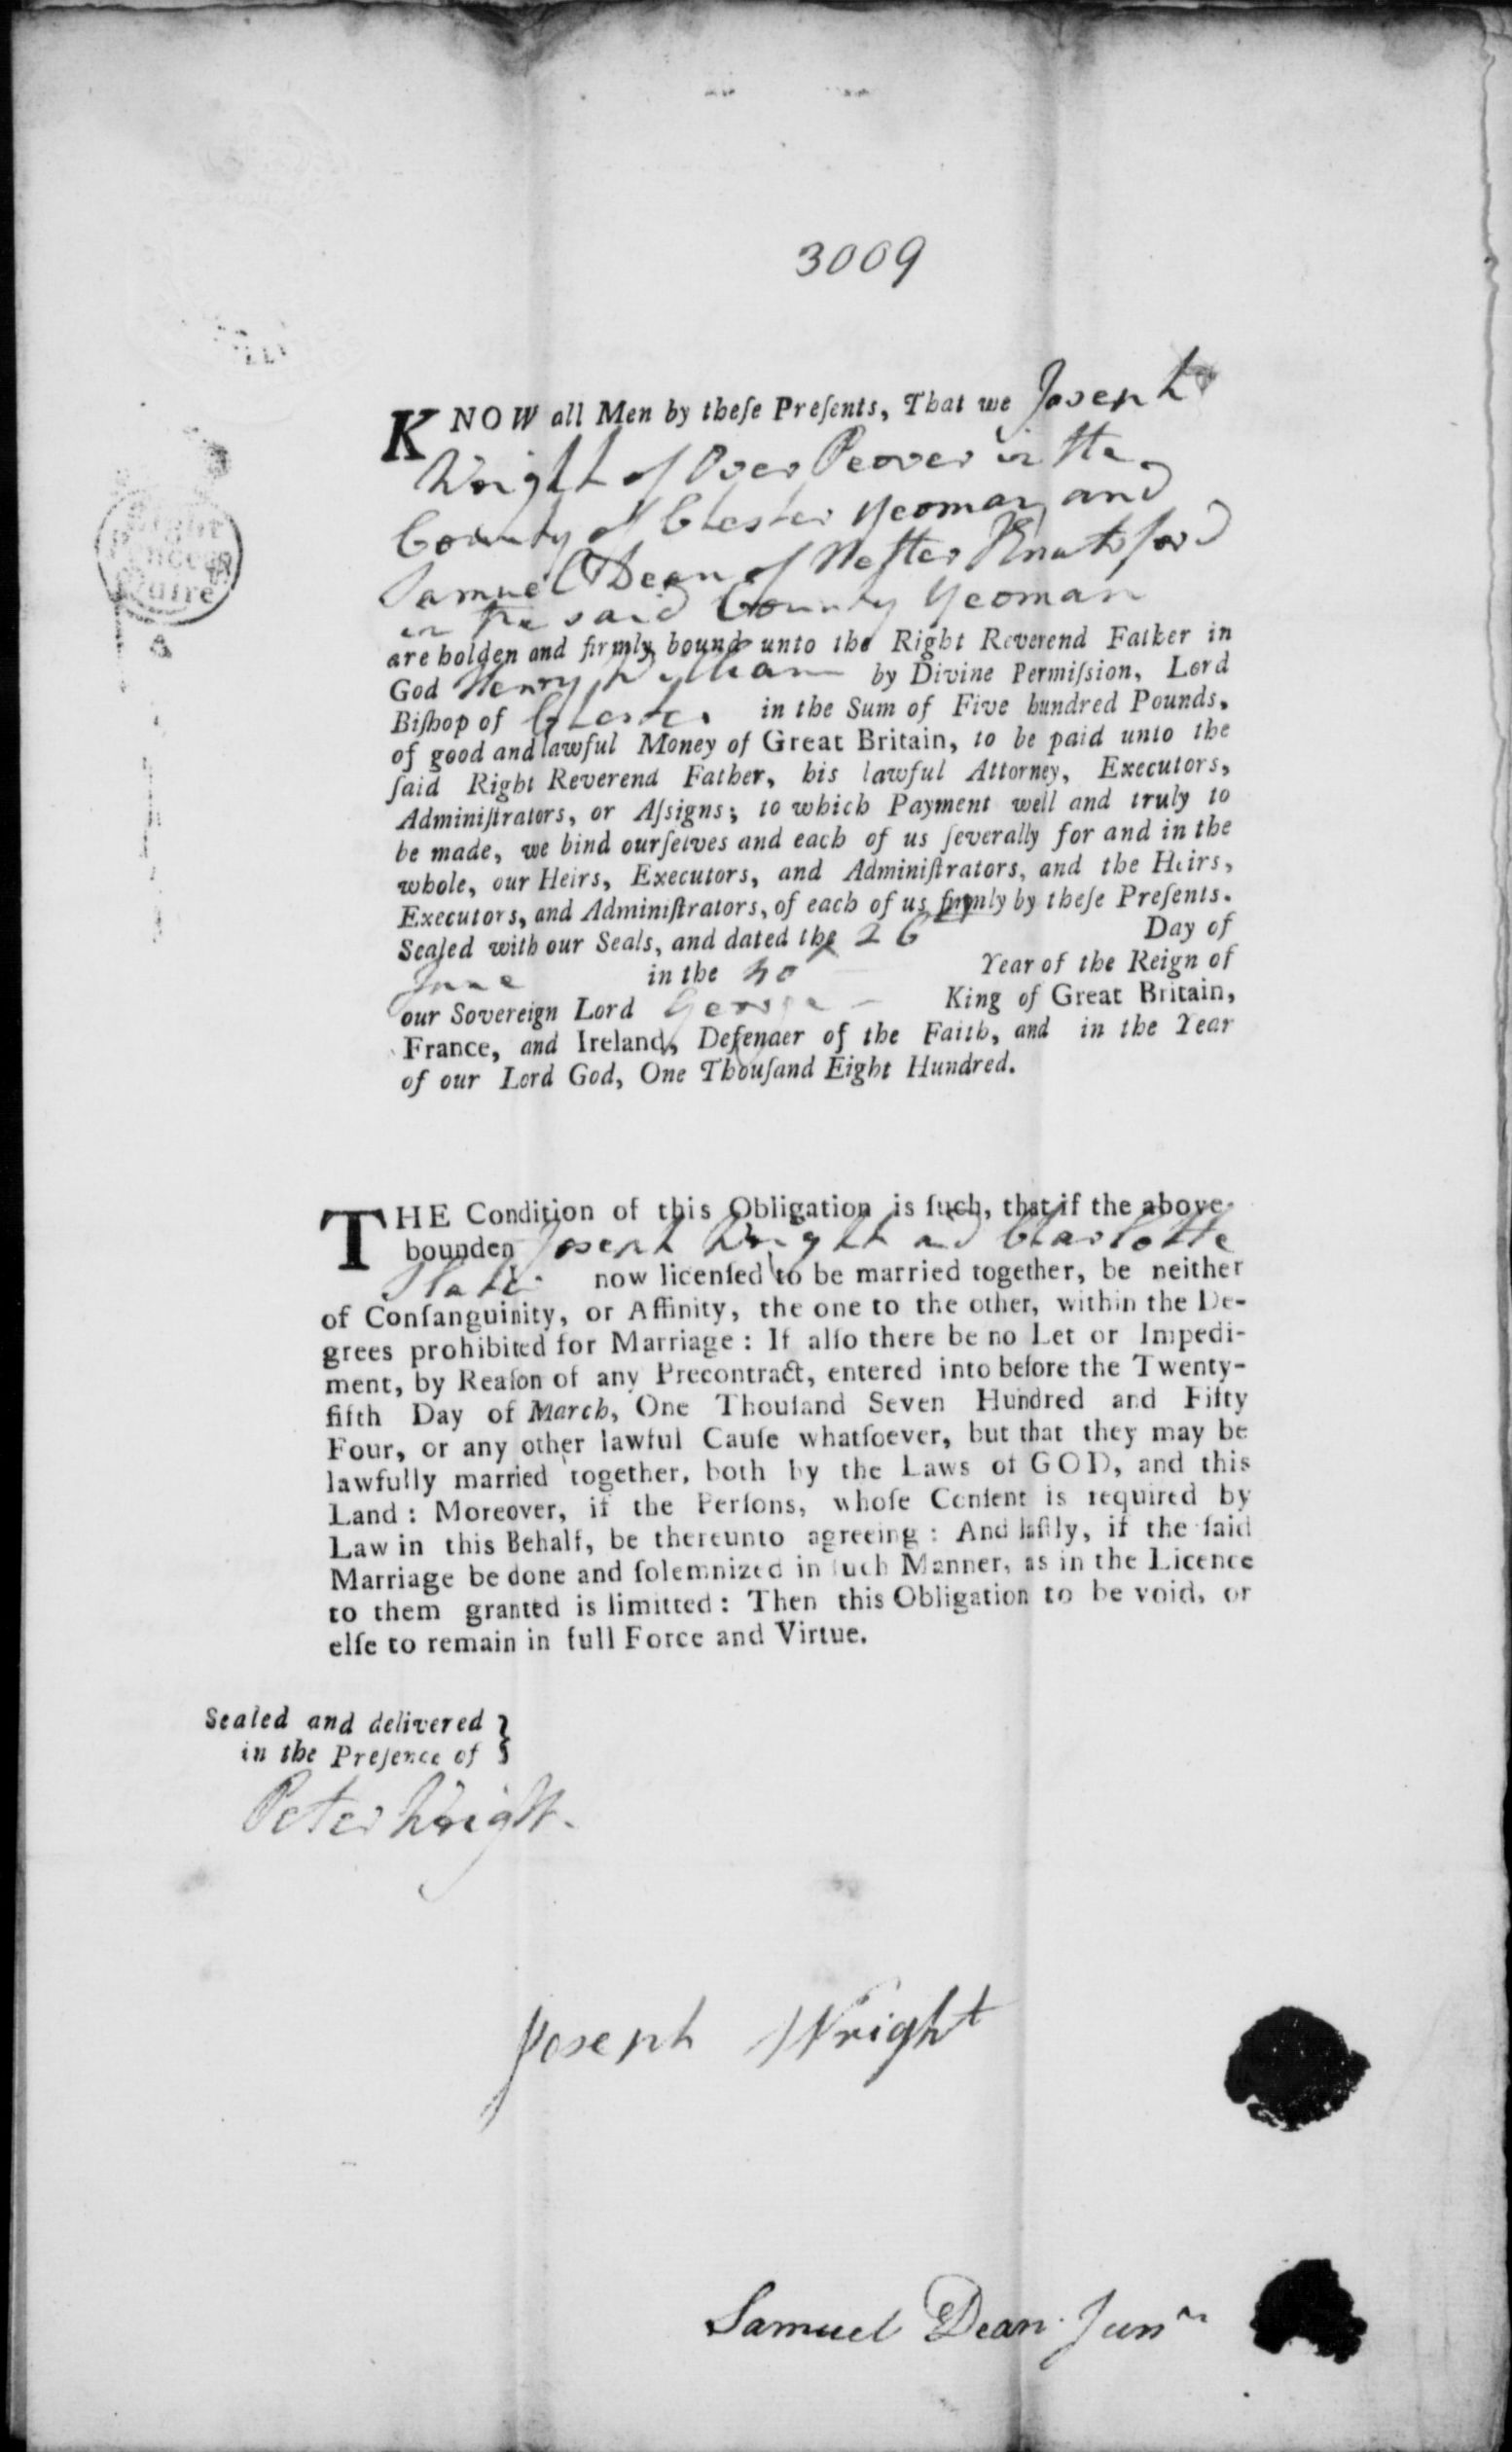 3009
KNOW all Men by theſe Preſents, That we Joseph
Wright of Over Peover in the
County of Chester Yeoman and
Samuel Dean of Nether Knutsford
in the said County Yeoman
are holden and firmly bound unto the Right Reverend Father in
God Henry William by Divine Permiſsion, Lord
Biſhop of Chester in the Sum of Five hundred Pounds,
of good and lawful Money of Great Britain, to be paid unto the
ſaid Right Reverend Father, his lawful Attorney, Executors,
Adminiſtrators, or Aſsigns; to which Payment well and truly to
be made, we bind ourſelves and each of us ſeverally for and in the
whole, our Heirs, Executors, and Adminiſtrators, and the Heirs,
Executors, and Adminiſtrators, of each of us firmly by theſe Preſents.
Sealed with our Seals, and dated the 26 Day of
June in the 40 Year of the Reign of
our Sovereign Lord George King of Great Britain,
France, and Ireland, Defender of the Faith, and in the Year
of our Lord God, One Thouſand Eight Hundred.
THE Condition of this Obligation is ſuch, that if the above-
bounden Joseph Wright and Charlotte
now licenſed to be married together, be neither
of Conſanguinity, or Affinity, the one to the other, within the De-
grees prohibited for Marriage: If alſo there be no Let or Impedi-
ment, by Reaſon of any Precontract, entered into before the Twenty-
fifth Day of March, One Thouſand Seven Hundred and Fifty
Four, or any other lawful Cauſe whatſoever, but that they may be
lawfully married together, both by the Laws of GOD, and this
Land: Moreover, if the Perſons, whoſe Conſent is required by
Law in this Behalf, be thereunto agreeing: And laſtly, if the ſaid
Marriage be done and ſolemnized in ſuch Manner, as in the Licence
to them granted is limitted: Then this Obligation to be void, or
elſe to remain in full Force and Virtue.
Sealed and delivered }
in the Preſence of }
Peter Wright.
Joseph Wright
Samuel Dean Junr